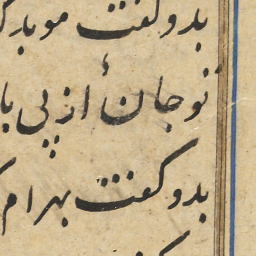 بدو گفت موبد
تو جان از پی
بدو گفت بهرام